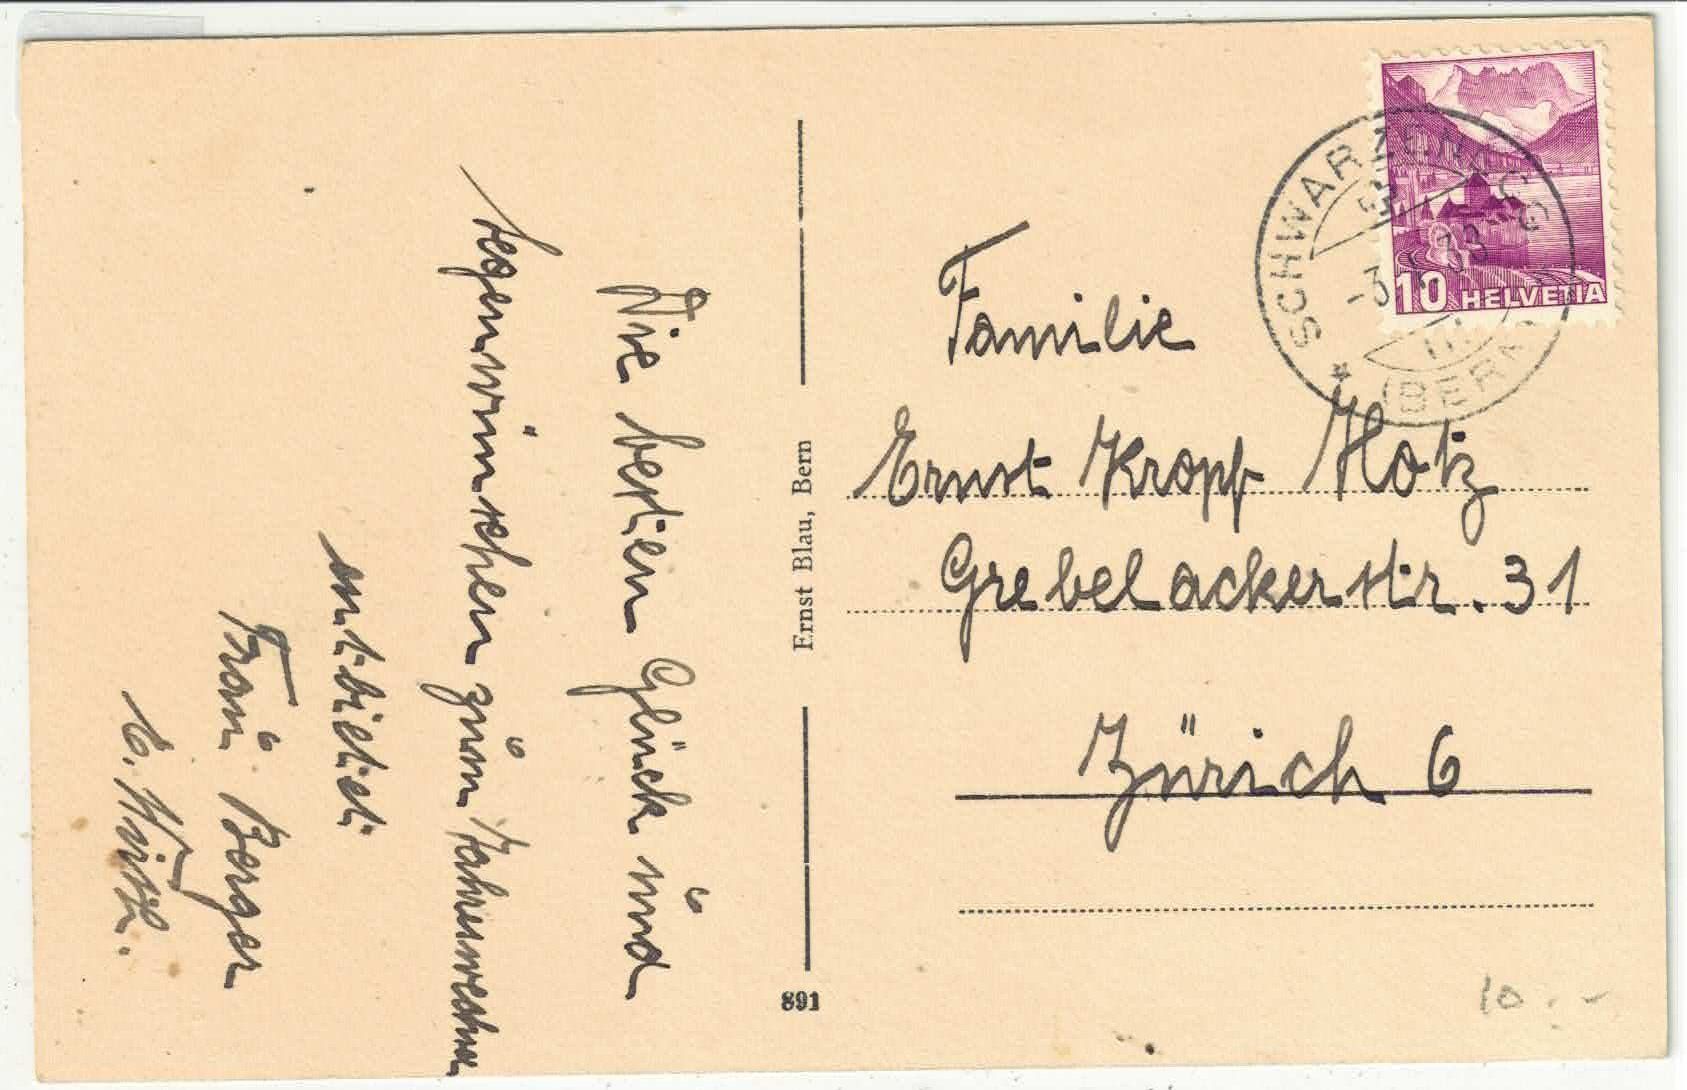 Die besten Glück und
segenwünschen zum Jahreswechsel
entbietet
Frau Berger
Ernst Blau, Bern
891
SCHWARZENEGG
(BERN)
10 HELVETIA
Familie
Ernst Kropf Hotz
Grebelackerstr. 31
Zürich 6
10.-